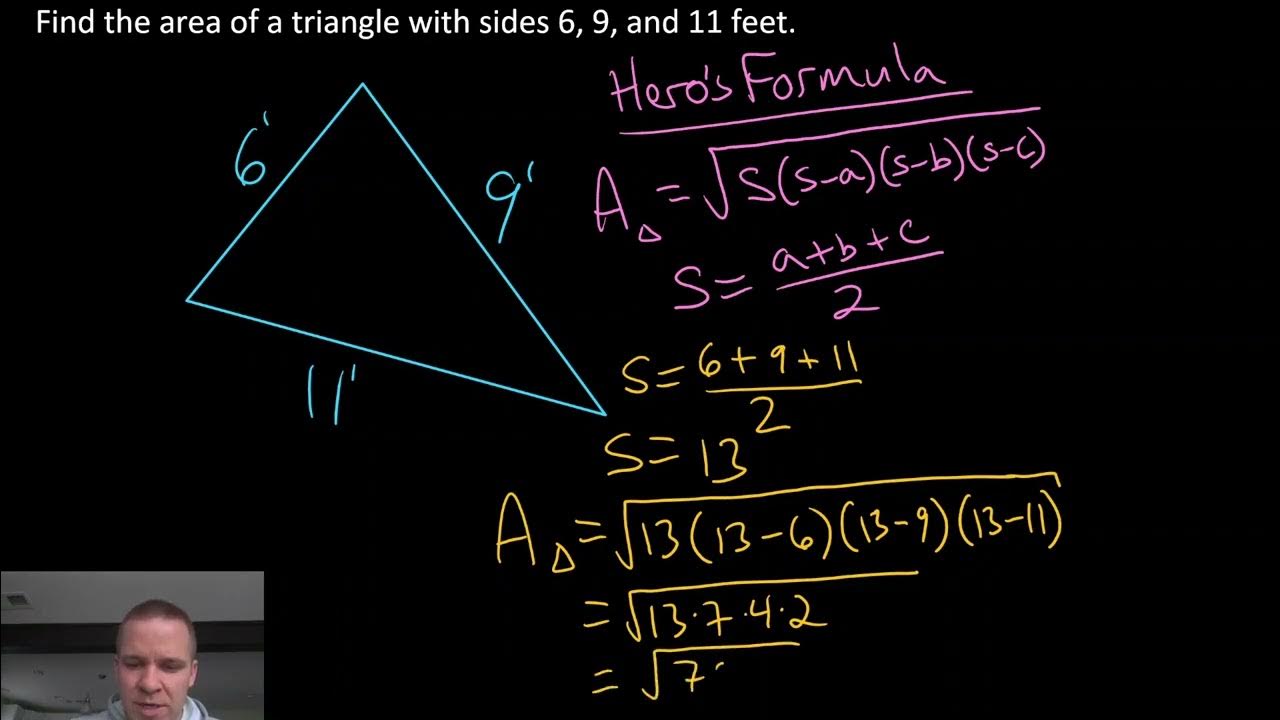 Find the area of a triangle with sides 6, 9, and 11 feet.
Hero's Formula
6'
9'
11'
A△ = √S(s-a)(s-b)(s-c)
S = a+b+c / 2
S = 6+9+11 / 2
S = 13
A△ = √13(13-6)(13-9)(13-11)
= √13·7·4·2
= √7